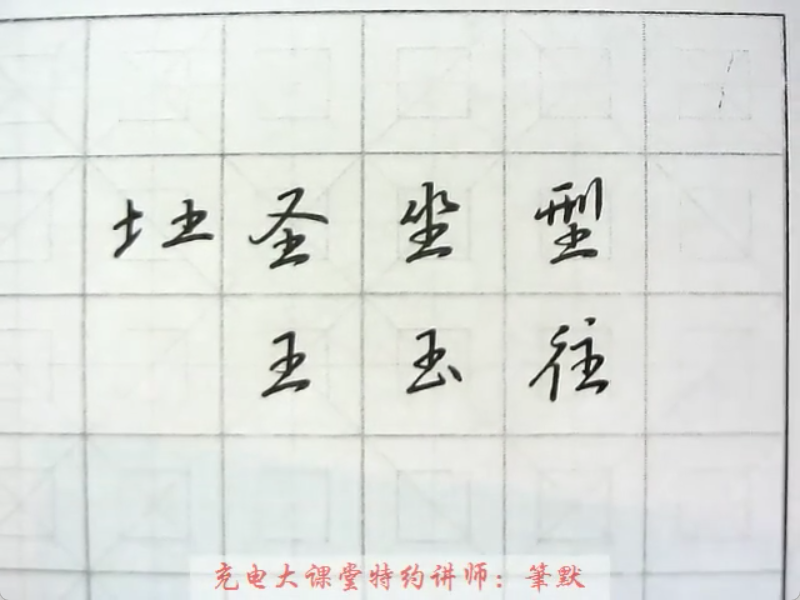 土土圣坐型
王玉往
充电大课堂特约讲师：筆默